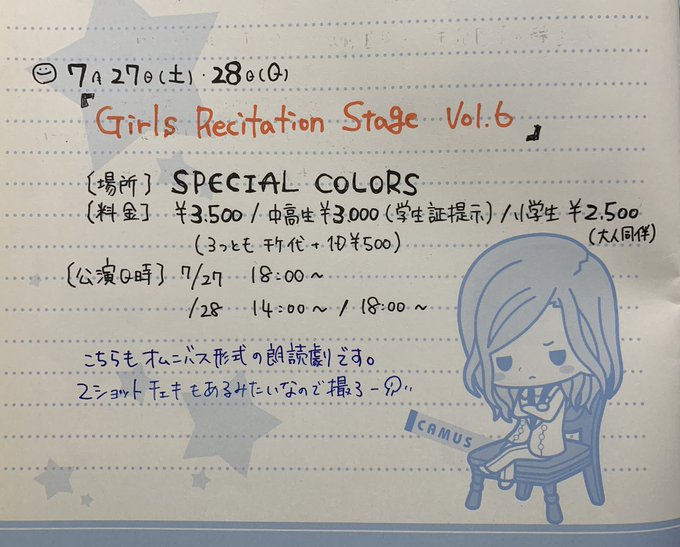 7月27日(土)・28日(日)
『Girls Recitation Stage Vol.6』
[場所] SPECIAL COLORS
[料金] ¥3.500 / 中高生¥3.000 (学生証提示) / 小学生 ¥2.500
(3つとも チケ代+1D¥500)
(大人同伴)
[公演日時] 7/27 18:00~
/28 14:00~ / 18:00~
こちらも オムニバス形式の朗読劇です。
2ショット チェキもあるみたいなので撮ろー
CAMUS